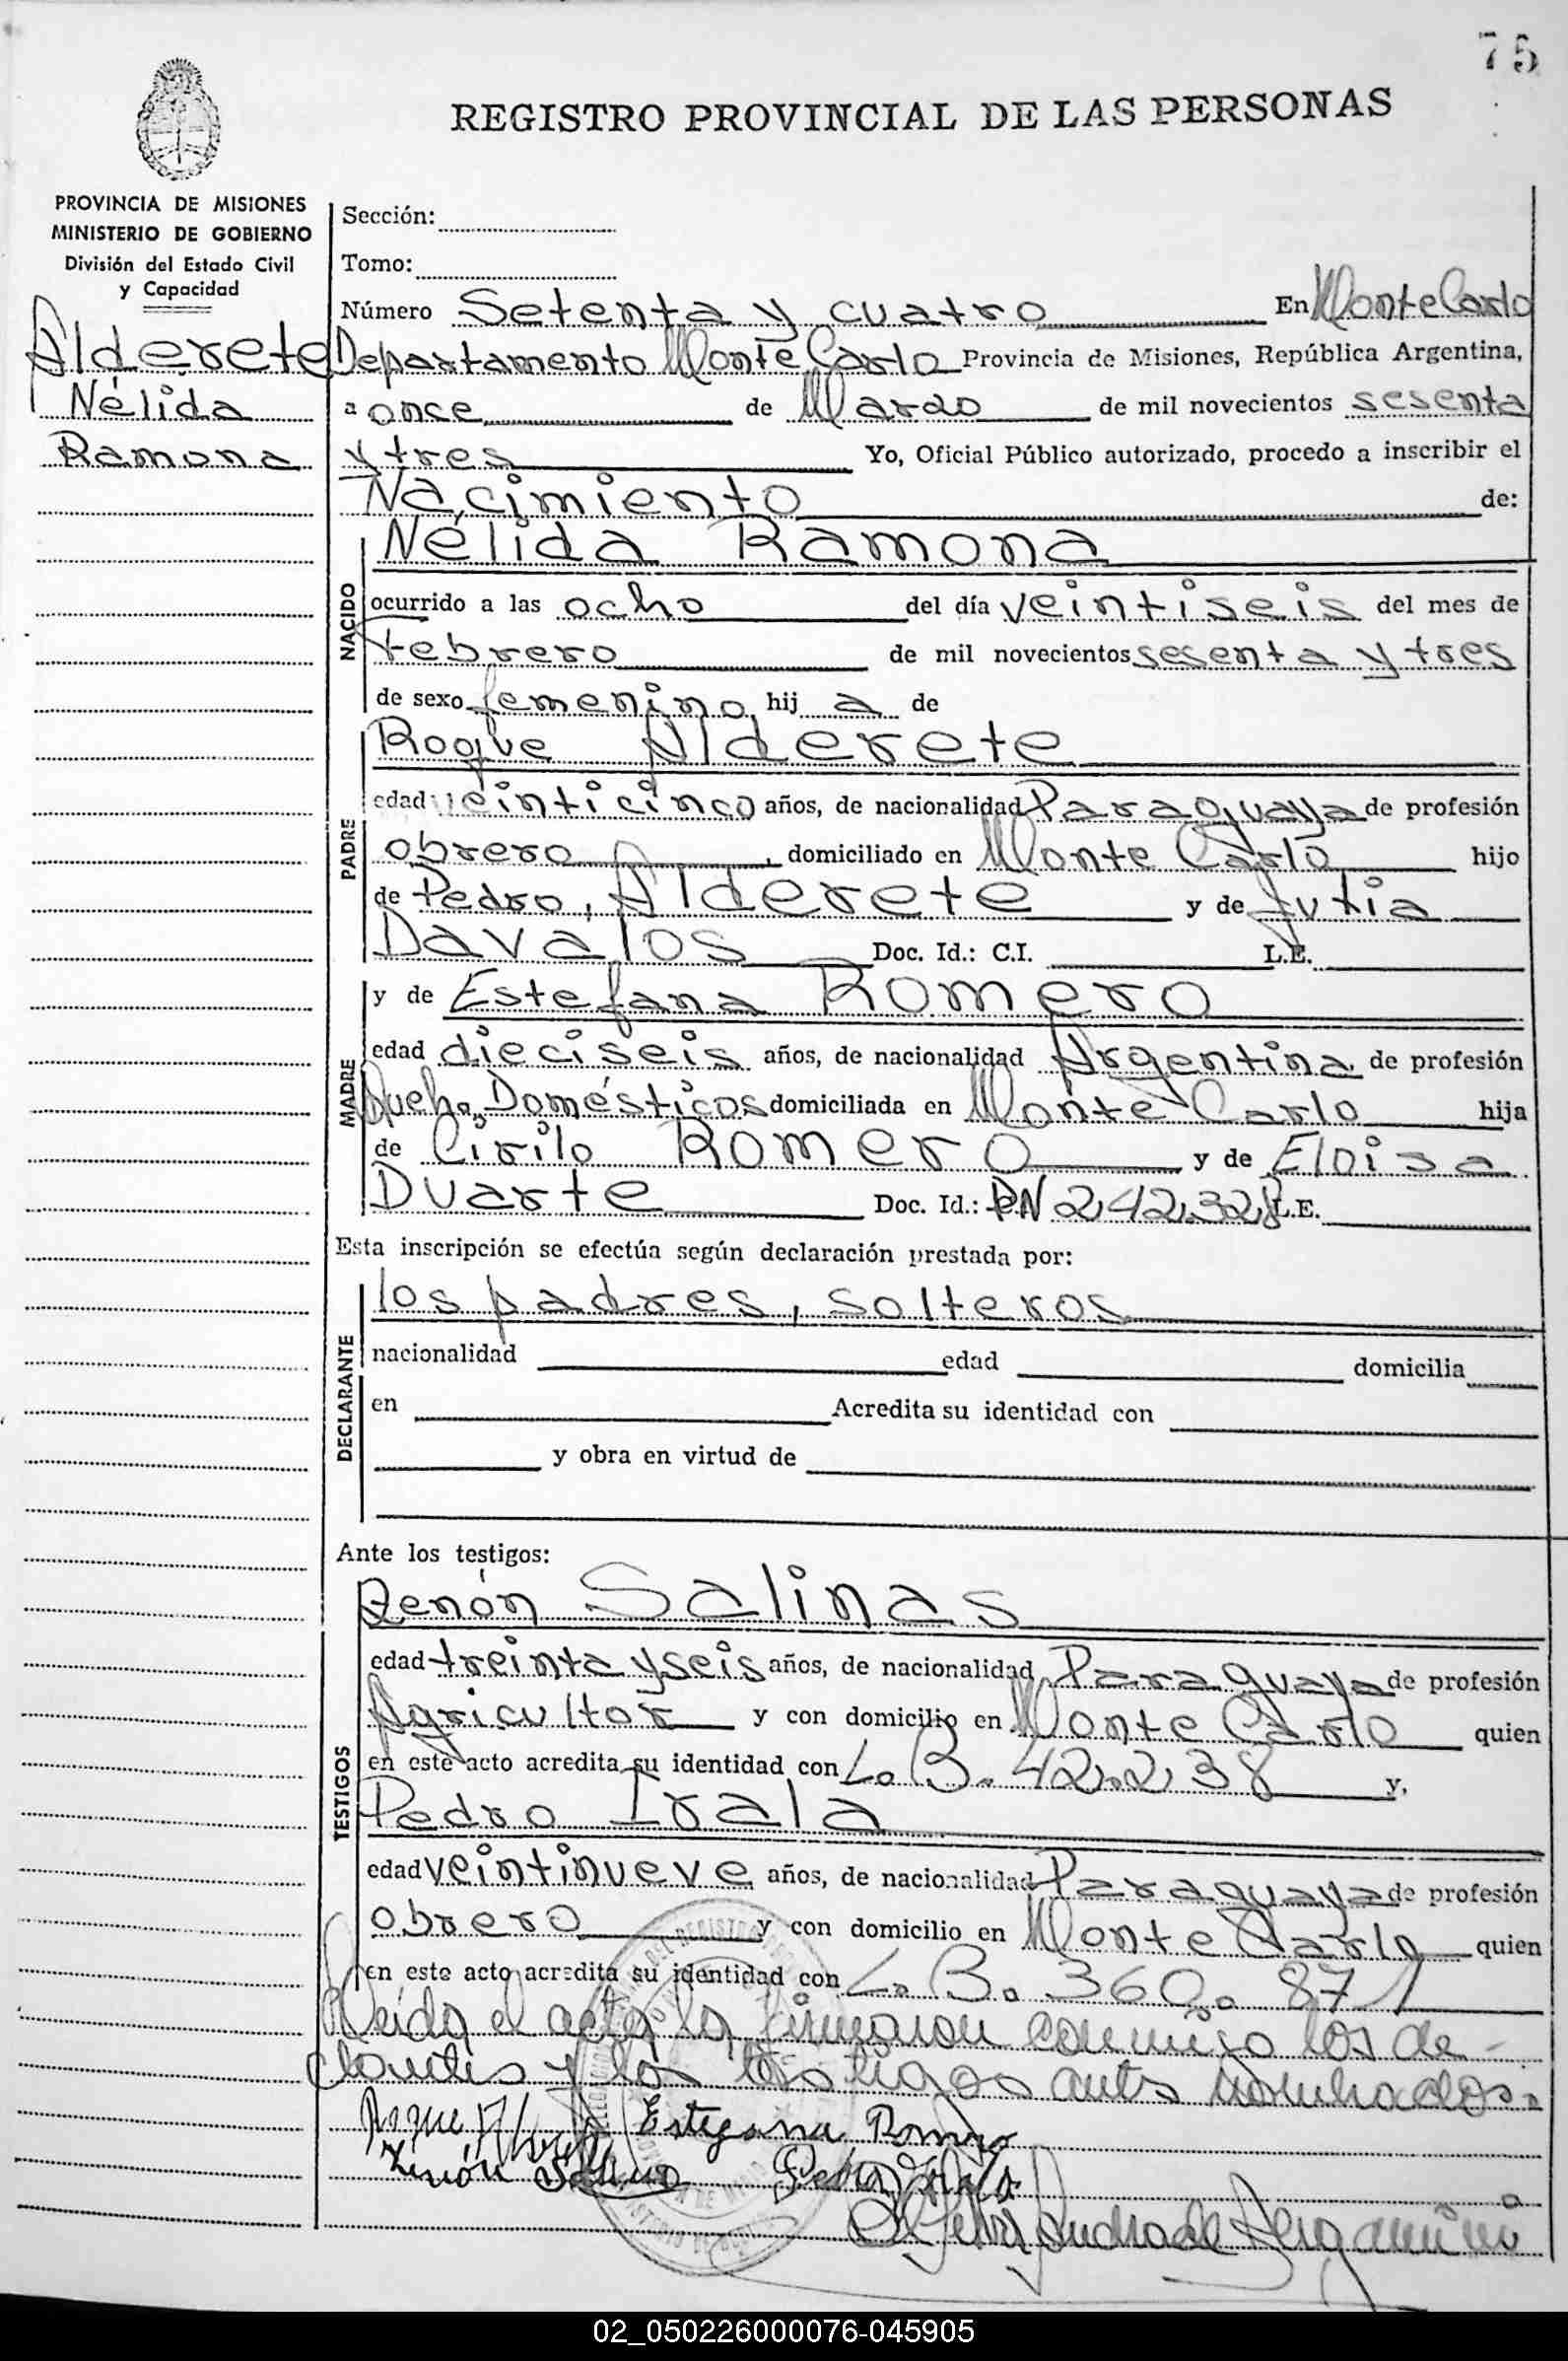 75
REGISTRO PROVINCIAL DE LAS PERSONAS
PROVINCIA DE MISIONES
MINISTERIO DE GOBIERNO
División del Estado Civil
y Capacidad
Alderete
Nélida
Ramona
Sección:
Tomo:
Número Setenta y cuatro En Monte Carlo
Departamento Monte Carlo Provincia de Misiones, República Argentina,
a once de Marzo de mil novecientos sesenta
y tres Yo, Oficial Público autorizado, procedo a inscribir el
Nacimiento de:
NACIDO
Nélida Ramona
ocurrido a las ocho del día veintiseis del mes de
febrero de mil novecientos sesenta y tres
de sexo femenino hij a de
PADRE
Roque Alderete
edad veinticinco años, de nacionalidad Paraguaya de profesión
obrero, domiciliado en Monte Carlo hijo
de Pedro, Alderete y de Julia
Davalos Doc. Id.: C.I. L.E.
MADRE
y de Estefana Romero
edad dieciseis años, de nacionalidad Argentina de profesión
Queh. Domésticos domiciliada en Monte Carlo hija
de Cirilo Romero y de Eloisa
Duarte Doc. Id.: 242.328 L.E.
Esta inscripción se efectúa según declaración prestada por:
DECLARANTE
los padres, solteros
nacionalidad edad domicilia
en Acredita su identidad con
y obra en virtud de
Ante los testigos:
TESTIGOS
Zenón Salinas
edad treinta y seis años, de nacionalidad Paraguaya de profesión
Agricultor y con domicilio en Monte Carlo quien
en este acto acredita su identidad con L. B. 42.238 y,
Pedro Irala
edad veintinueve años, de nacionalidad Paraguaya de profesión
obrero y con domicilio en Monte Carlo quien
en este acto acredita su identidad con L. B. 360.871
Leída el acta la firmaron conmigo los de-
clarantes y los testigos antes nombrados.
Roque Estefana Romero
Zenón Salinas Pedro Irala
Andrade Bergamini
02_050226000076-045905